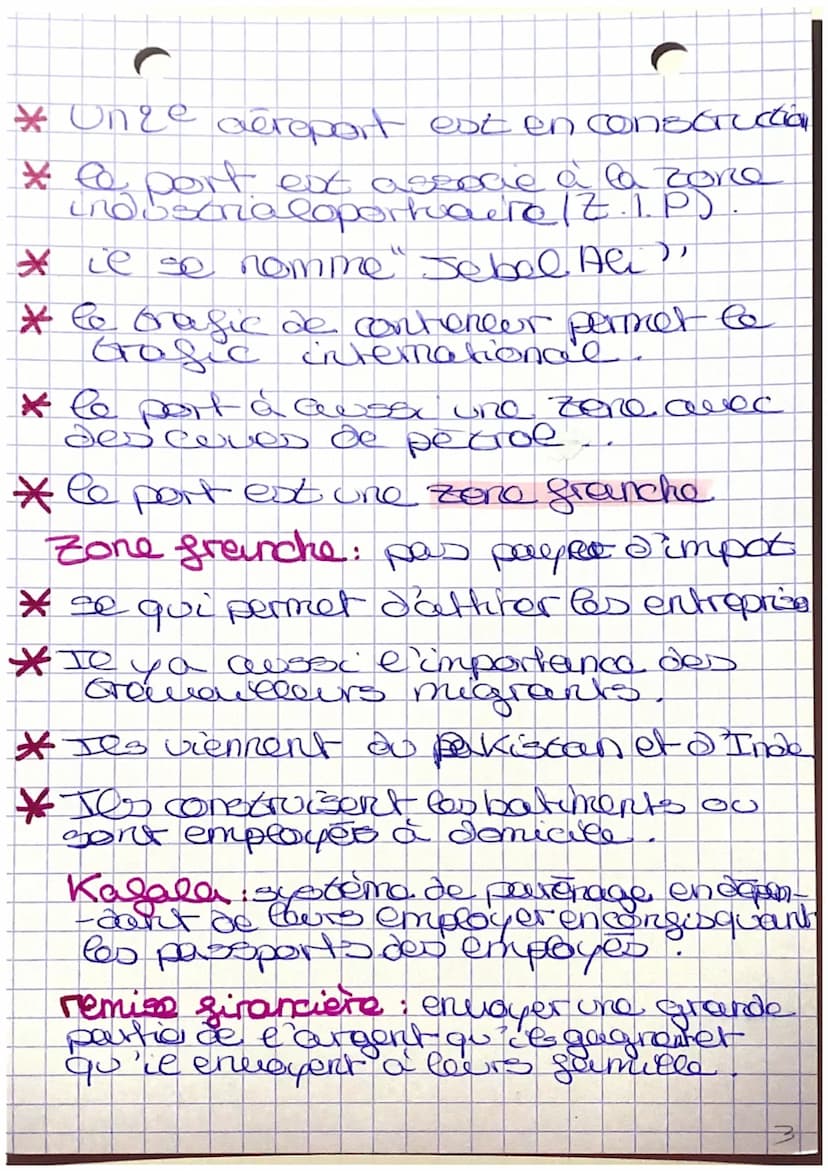 * Un 2e aéroport est en construction
* le port est associé à la zone
industrialoportuaire (Z.I.P).
* il se nomme "Jebel Ali"
* le trafic de conteneur permet le
trafic internationale.
* le port à aussi une zone avec
des cuves de pétrole..
* le port est une zone franche
Zone franche: pas payer d'impot
* se qui permet d'attirer les entreprise
* Il y a aussi l'importance des
travailleurs migrants.
* Ils viennent du Pakistan et d'Inde
* Ils construisent les batiments ou
sont employés à domicile.
Kafala: système de parrénage, en dépen-
-dant de leurs employer en confisquant
les passports des employés.
remise financière: envoyer une grande
partie de l'argent qu'ils gagnent et
qu'il envoyent à leurs famille.
3